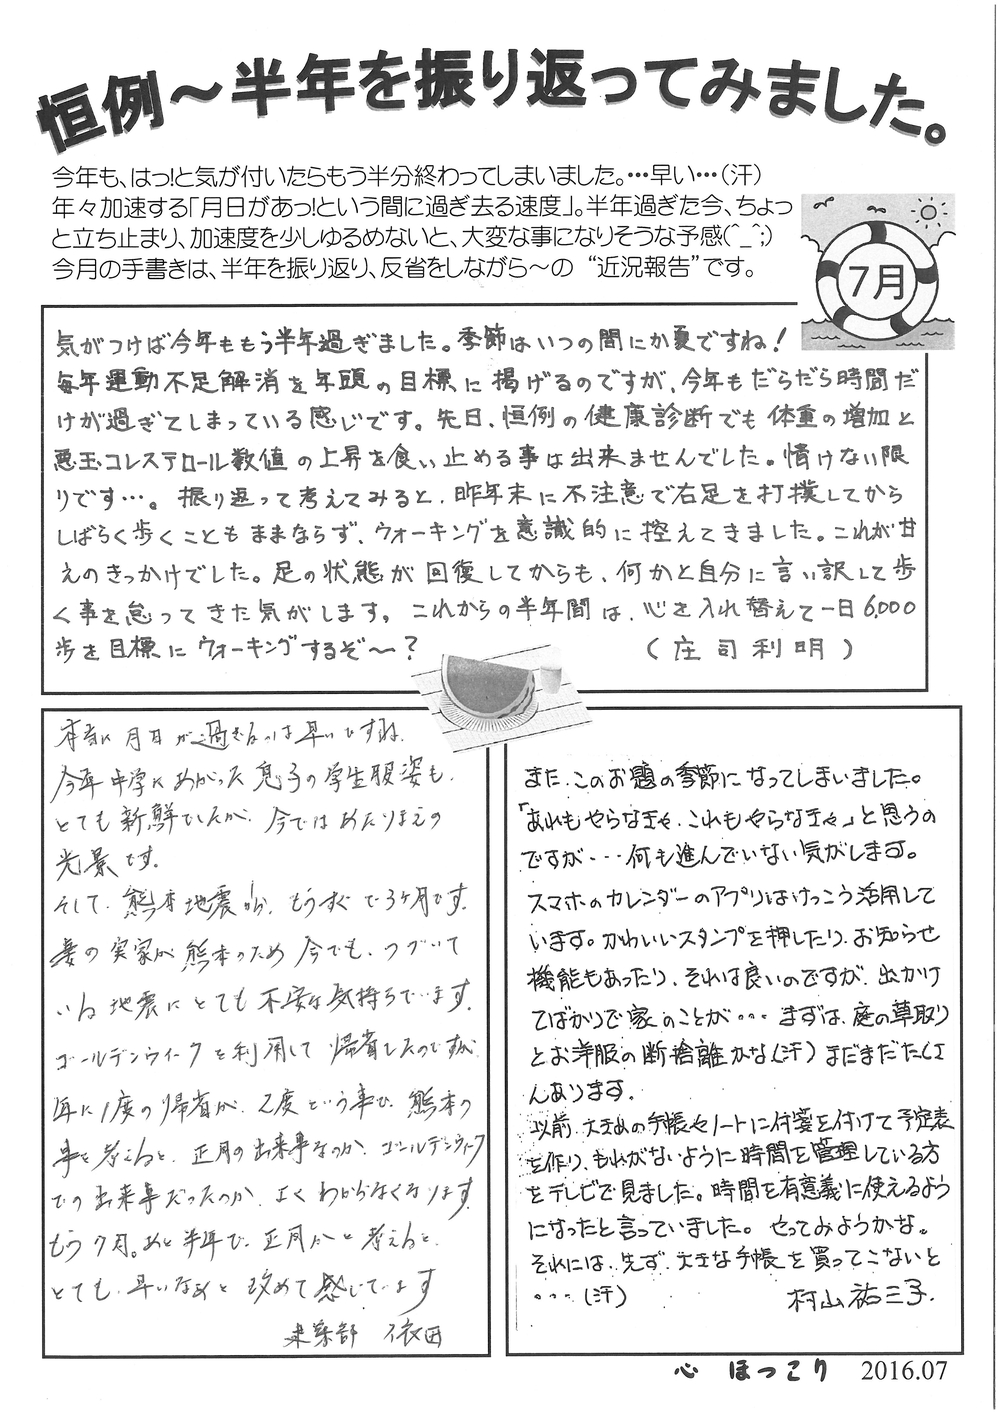 恒例～半年を振り返ってみました。
今年も、はっ!と気が付いたらもう半分終わってしまいました。…早い…（汗）
年々加速する「月日があっ!という間に過ぎ去る速度」。半年過ぎた今、ちょっ
と立ち止まり、加速度を少しゆるめないと、大変な事になりそうな予感(^_^;)
今月の手書きは、半年を振り返り、反省をしながら～の “近況報告”です。
7月
気がつけば今年ももう半年過ぎました。季節はいつの間にか夏ですね!
毎年運動不足解消を年頭の目標に掲げるのですが、今年もだらだら時間だ
けが過ぎてしまっている感じです。先日、恒例の健康診断でも体重の増加と
悪玉コレステロール数値の上昇を食い止める事は出来ませんでした。情けない限
りです…。振り返って考えてみると、昨年末に不注意で右足を打撲してから
しばらく歩くこともままならず、ウォーキングを意識的に控えてきました。これが甘
えのきっかけでした。足の状態が回復してからも、何かと自分に言い訳して歩
く事を怠ってきた気がします。これからの半年間は、心を入れ替えて一日6,000
歩を目標にウォーキングするぞ～?
(庄司利明)
本当に月日が過ぎるのは早いですね。
今年中学にあがった息子の学生服姿も、
とても新鮮でしたが、今ではあたりまえの
光景です。
そして、熊本地震から、もうすぐで3ヶ月です。
妻の実家が熊本のため今でも、つづいて
いる地震にとても不安な気持ちでいます。
ゴールデンウィークを利用して帰省したのですが、
年に1度の帰省が、2度という事で、熊本の
事を考えると、正月の出来事なのか、ゴールデンウィーク
での出来事だったのか、よくわからなくなります。
もう7月。あと半年で、正月かと考えると、
とても、早いなあと改めて感じています
来楽部 依田
また、このお題の季節になってしまいました。
「あれもやらなきゃ、これもやらなきゃ」と思うの
ですが・・・何も進んでいない気がします。
スマホのカレンダーのアプリはけっこう活用して
います。かわいいスタンプを押したり、お知らせ
機能もあったり、それは良いのですが、出かけ
てばかりで家のことが・・・まずは、庭の草取り
とお洋服の断捨離かな(汗)まだまだたくさ
んあります。
以前、大きめの手帳やノートに付箋を付けて予定表
を作り、もれがないように時間を管理している方
をテレビで見ました。時間を有意義に使えるよう
になったと言っていました。やってみようかな。
それには、先ず、大きな手帳を買ってこないと
・・・(汗)
村山祐三子.
心 ほっこり 2016.07